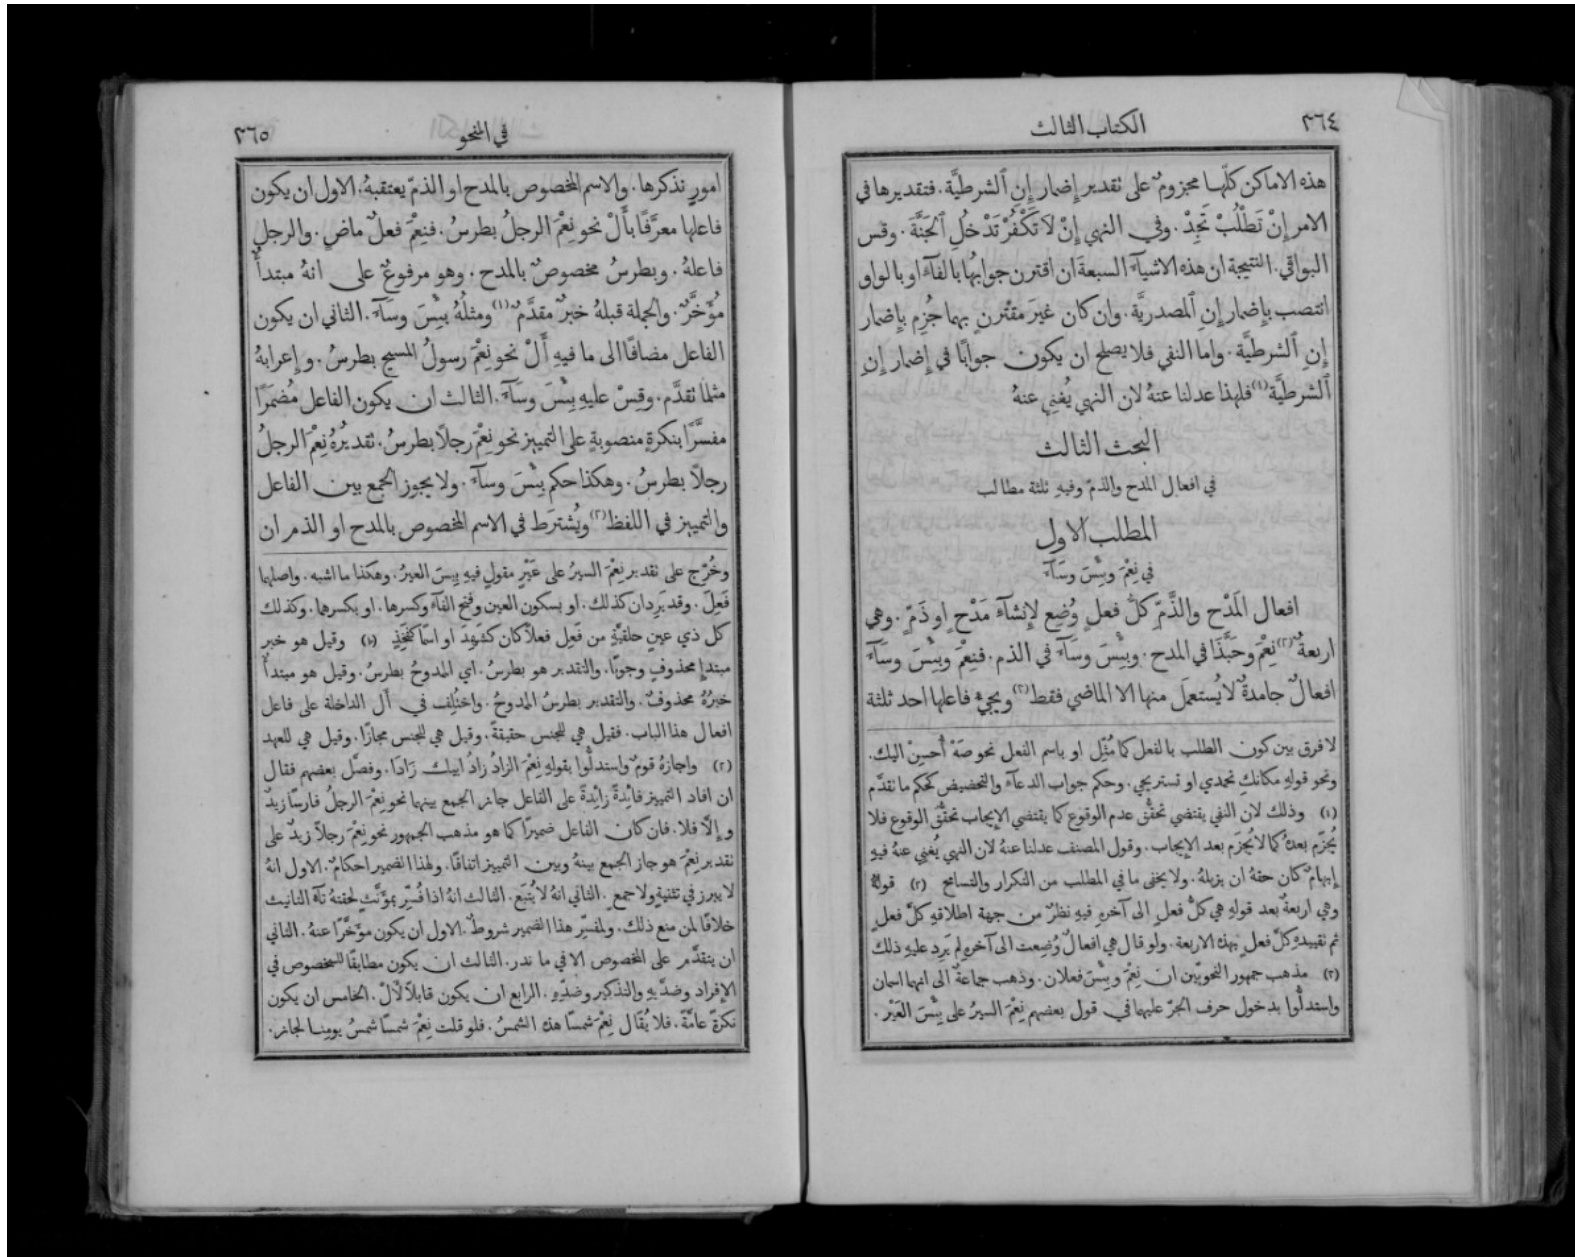 ٣٦٤
الكتاب الثالث
هذه الاماكن كلّها مجزومٌ على تقدير إِضمار إِنِ ٱلشرطيَّة. فتقديرها في
الامر إِنْ تَطْلُبْ تَجِدْ. وفي النهي إِنْ لاَ تَكْفُرْ تَدْخُلِ ٱلجَنَّةَ. وقس
البواقي. النتيجة ان هذه الاشيآءَ السبعةَ ان اقترن جوابُها بالفآءِ او بالواو
انتصب بإِضمار إِنِ ٱلمصدريَّة. وان كان غيرَ مقترنٍ بهما جُزِم بإِضمار
إِنِ ٱلشرطيَّة. واما النفي فلا يصلح ان يكون جوابًا في إِضمار إِنِ
ٱلشرطيَّة(١) فلهذا عدلنا عنهُ لان النهي يُغنِي عنهُ
البحث الثالث
في افعال المدح والذمّ وفيهِ ثلثة مطالب
المطلب الاول
في نِعْمَ وبِئْسَ وسَآءَ
افعال المَدْح والذَّمّ كلُّ فعلٍ وُضِع لإِنشآءِ مَدْحٍ او ذَمّ. وهي
اربعةٌ(٢) نِعْمَ وحَبَّذَا في المدح. وبِئْسَ وسَآءَ في الذم. فنِعْمَ وبِئْسَ وسَآءَ
افعالٌ جامدةٌ لا يُستعمَل منها الا الماضي فقط(٣) ويجيءُ فاعلها احد ثلثة
لا فرق بين كون الطلب بالفعل كما مُثِّل او باسم الفعل نحو صَهْ أُحسِنْ اليك.
ونحو قولهِ مكانكِ تحمدي او تستريحي. وحكم جواب الدعآءِ والتحضيض كحكم ما تقدَّم
(١) وذلك لان النفي يقتضي تحقُّق عدم الوقوع كما يقتضي الإِيجاب تحقُّق الوقوع فلا
يُجزَم بعدهُ كما لا يُجزَم بعد الإِيجاب. وقول المصنف عدلنا عنهُ لان النهي يُغني عنهُ فيهِ
إِبهامٌ كان حقهُ ان يزيلهُ. ولا يخفى ما في المطلب من التكرار والتسامح (٢) قولهُ
وهي اربعةٌ بعد قولهِ هي كلُّ فعلٍ الى آخرهِ فيهِ نظرٌ من جهة اطلاقهِ كلَّ فعلٍ
ثم تقييدهِ كلَّ فعلٍ بهذه الاربعة. ولو قال هي افعالٌ وُضِعت الى آخرهِ لم يَرِد عليهِ ذلك
(٣) مذهب جمهور النحويّين ان نِعْمَ وبِئْسَ فعلان. وذهب جماعةٌ الى انهما اسمان
واستدلُّوا بدخول حرف الجرّ عليهما في قول بعضهم نِعْمَ السيرُ على بِئْسَ العَيْر.
٣٦٥
في النحو
امورٍ نذكرها. والاسم المخصوص بالمدح او الذمّ يعتقبهُ. الاول ان يكون
فاعلها معرَّفًا بأَلْ نحو نِعْمَ الرجلُ بطرسُ. فنِعْمَ فعلٌ ماضٍ. والرجل
فاعلهُ. وبطرسُ مخصوصٌ بالمدح. وهو مرفوعٌ على انهُ مبتدأٌ
مُؤَخَّرٌ. والجملة قبلهُ خبرٌ مقدَّمٌ(١) ومثلُهُ بِئْسَ وسَآءَ. الثاني ان يكون
الفاعل مضافًا الى ما فيهِ أَلْ نحو نِعْمَ رسولُ المسيح بطرسُ. وإِعرابهُ
مثلما تقدَّم. وقِسْ عليهِ بِئْسَ وسَآءَ. الثالث ان يكون الفاعل مُضمَرًا
مفسَّرًا بنكرةٍ منصوبةٍ على التمييز نحو نِعْمَ رجلاً بطرسُ. تقديرُهُ نِعْمَ الرجلُ
رجلاً بطرسُ. وهكذا حكم بِئْسَ وسآءَ. ولا يجوز الجمع بين الفاعل
والتمييز في اللفظ(٢) ويُشترَط في الاسم المخصوص بالمدح او الذم ان
وخُرِّج على تقدير نِعْمَ السيرُ على عَيْرٍ مقولٍ فيهِ بِيسَ العيرُ. وهكذا ما اشبه. واصلهما
فَعِلَ. وقد يَرِدان كذلك. او بسكون العين وفتح الفآءِ وكسرها. او بكسرهما. وكذلك
كل ذي عينٍ حلقيَّةٍ من فَعِل فعلاً كان كشَهِدَ او اسمًا كفَخِذٍ (١) وقيل هو خبر
مبتدإٍ محذوفٍ وجوبًا. والتقدير هو بطرسُ. اي الممدوحُ بطرسُ. وقيل هو مبتدأٌ
خبرُهُ محذوفٌ. والتقدير بطرسُ الممدوحُ. واختُلِف في أَل الداخلة على فاعل
افعال هذا الباب. فقيل هي للجنس حقيقةً. وقيل هي للجنس مجازًا. وقيل هي للعهد
(٢) واجازهُ قومٌ واستدلُّوا بقولهِ نِعْمَ الزادُ زادُ ابيك زَادَا. وفصَّل بعضهم فقال
ان افاد التمييز فائِدةً زائِدةً على الفاعل جاز الجمع بينهما نحو نِعْمَ الرجلُ فارسًا زيدٌ
وإِلاَّ فلا. فان كان الفاعل ضميرًا كما هو مذهب الجمهور نحو نِعْمَ رجلاً زيدٌ على
تقدير نِعْمَ هو جاز الجمع بينهُ وبين التمييز اتفاقًا. ولهذا الضمير احكامٌ. الاول انهُ
لا يبرز في تثنيةٍ ولا جمعٍ. الثاني انهُ لا يُتبَع. الثالث انهُ اذا فُسِّر بمؤَنَّثٍ لحقتهُ تآءُ التانيث
خلافًا لمن منع ذلك. ولمفسِّر هذا الضمير شروطٌ. الاول ان يكون مؤَخَّرًا عنهُ. الثاني
ان يتقدَّم على المخصوص الا في ما ندر. الثالث ان يكون مطابقًا للمخصوص في
الإِفراد وضدَّيهِ والتذكير وضدِّهِ. الرابع ان يكون قابلاً لأَلْ. الخامس ان يكون
نكرةً عامَّةً. فلا يُقَال نِعْمَ شمسًا هذه الشمسُ. فلو قلت نِعْمَ شمسًا شمسُ يومِنا لجاز.